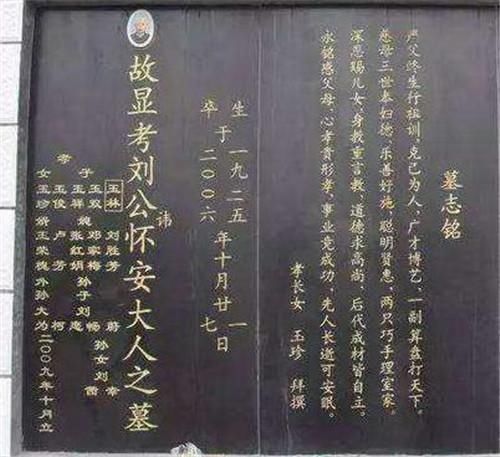 墓志铭
严父终生行祖训,克己为人,广才博艺,一副算盘打天下。
慈母三世奉妇德,乐善好施,聪明贤惠,两只巧手理室家。
深恩赐儿女,身教重言教,道德求高尚,后代成材皆自立。
永铭感父母,心孝贵形孝,事业竟成功,先人长逝可安眠。
孝长女 玉珍 拜撰
生 一九二五 一
于 年十月廿 日
卒 二00六 七
故显考刘公讳怀安大人之墓
玉林 刘胜芳 蔚
子 玉双 邓家梅 孙子刘畅 孙女刘幸
玉祥 媳 张红娟 茜
孝 玉俊 卢芳
女 玉珍 婿 王荣槐 外孙 柯大为
二00九年十月立